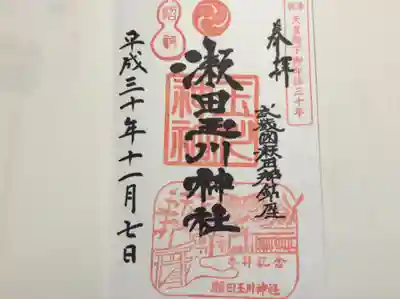 奉拝
天皇陛下御即位三十年
武蔵國瀬田郷鎮座
瀬田玉川神社
玉川神社
平成三十年十一月七日
参拝記念
瀬田玉川神社